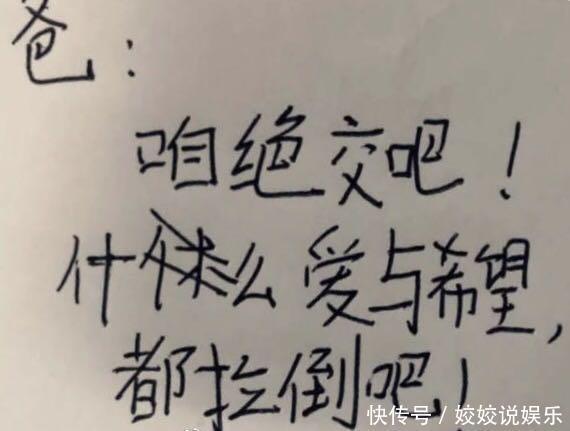 爸：
咱绝交吧！
什么爱与希望，
都拉倒吧！
快传号／姣姣说娱乐